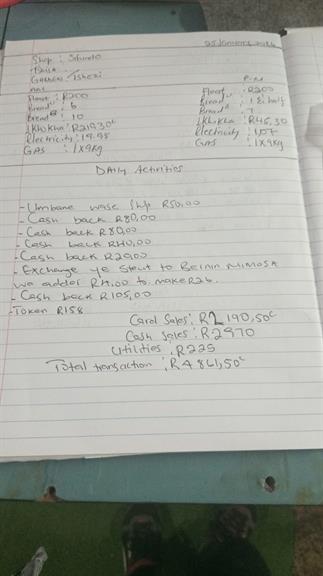 25 January
Shop : Shoreto
Cashier /
AM P.M
Float : R200 Float : R200
Bread : 6 Bread : 1 & half
Bread : 10 Bread : 7
Khokha : R2193 Khokha : R45,30
Electricity : 19.95 Electricity : 1,07
GAS : 1x9kg GAS : 1x9kg
DAILY Activities
- Umbane wase Shop R50,00
- Cash back R80,00
- Cash back R80,00
- Cash back R40,00
- Cash back R20,00
- Exchange ye Stout to Bernin MIMOSA
we added R4,00 to make R26.
- Cash back R105,00
- Token R158
Card Sales : R2 190,50c
Cash Sales : R2970
Utilities : R225
Total transaction : R4 861,50c